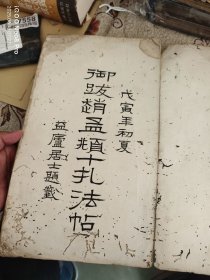 戊寅年初夏
御跋趙孟頫十札法帖
益廬居士題籤